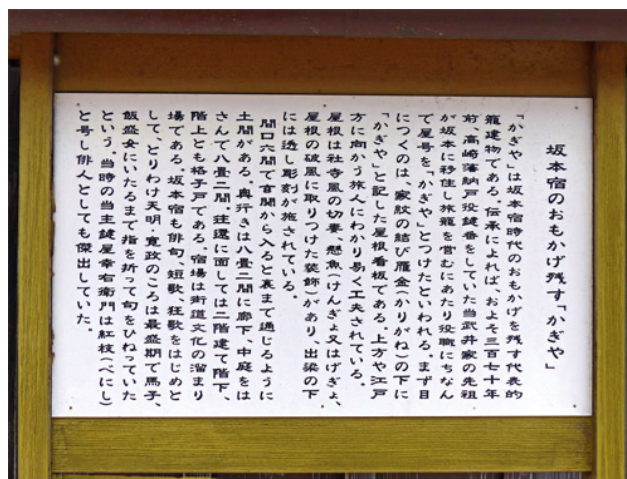 坂本宿のおもかげ残す「かぎや」
「かぎや」は坂本宿時代のおもかげを残す代表的
旅籠建物である。伝承によれば、およそ三百七十年
前 高崎藩納戸役鍵番をしていた当武井家の先祖
が坂本に移住し旅籠を営むにあたり役職にちなん
で屋号を「かぎや」とつけたといわれる。まず目
につくのは、家紋の結び雁金(かりがね)の下に
「かぎや」と記した屋根看板である。上方や江戸
方に向かう旅人にわかり易く工夫されている。
屋根は社寺風の切妻、懸魚(けんぎょ又はげぎょ、
屋根の破風に取りつけた装飾)があり、出梁の下
には透し彫刻が施されている。
間口六間で玄関から入ると裏まで通じるように
土間がある。奥行きは八畳二間に廊下、中庭をは
さんで八畳二間。往還に面しては二階建て階下、
階上とも格子戸である。宿場は街道文化の溜まり
場である。坂本宿も俳句、短歌、狂歌をはじめと
して、とりわけ天明・寛政のころは最盛期で馬子、
飯盛女にいたるまで指を折って句をひねっていた
という。当時の当主鍵屋幸右衛門は紅枝(べにし)
と号し俳人としても傑出していた。